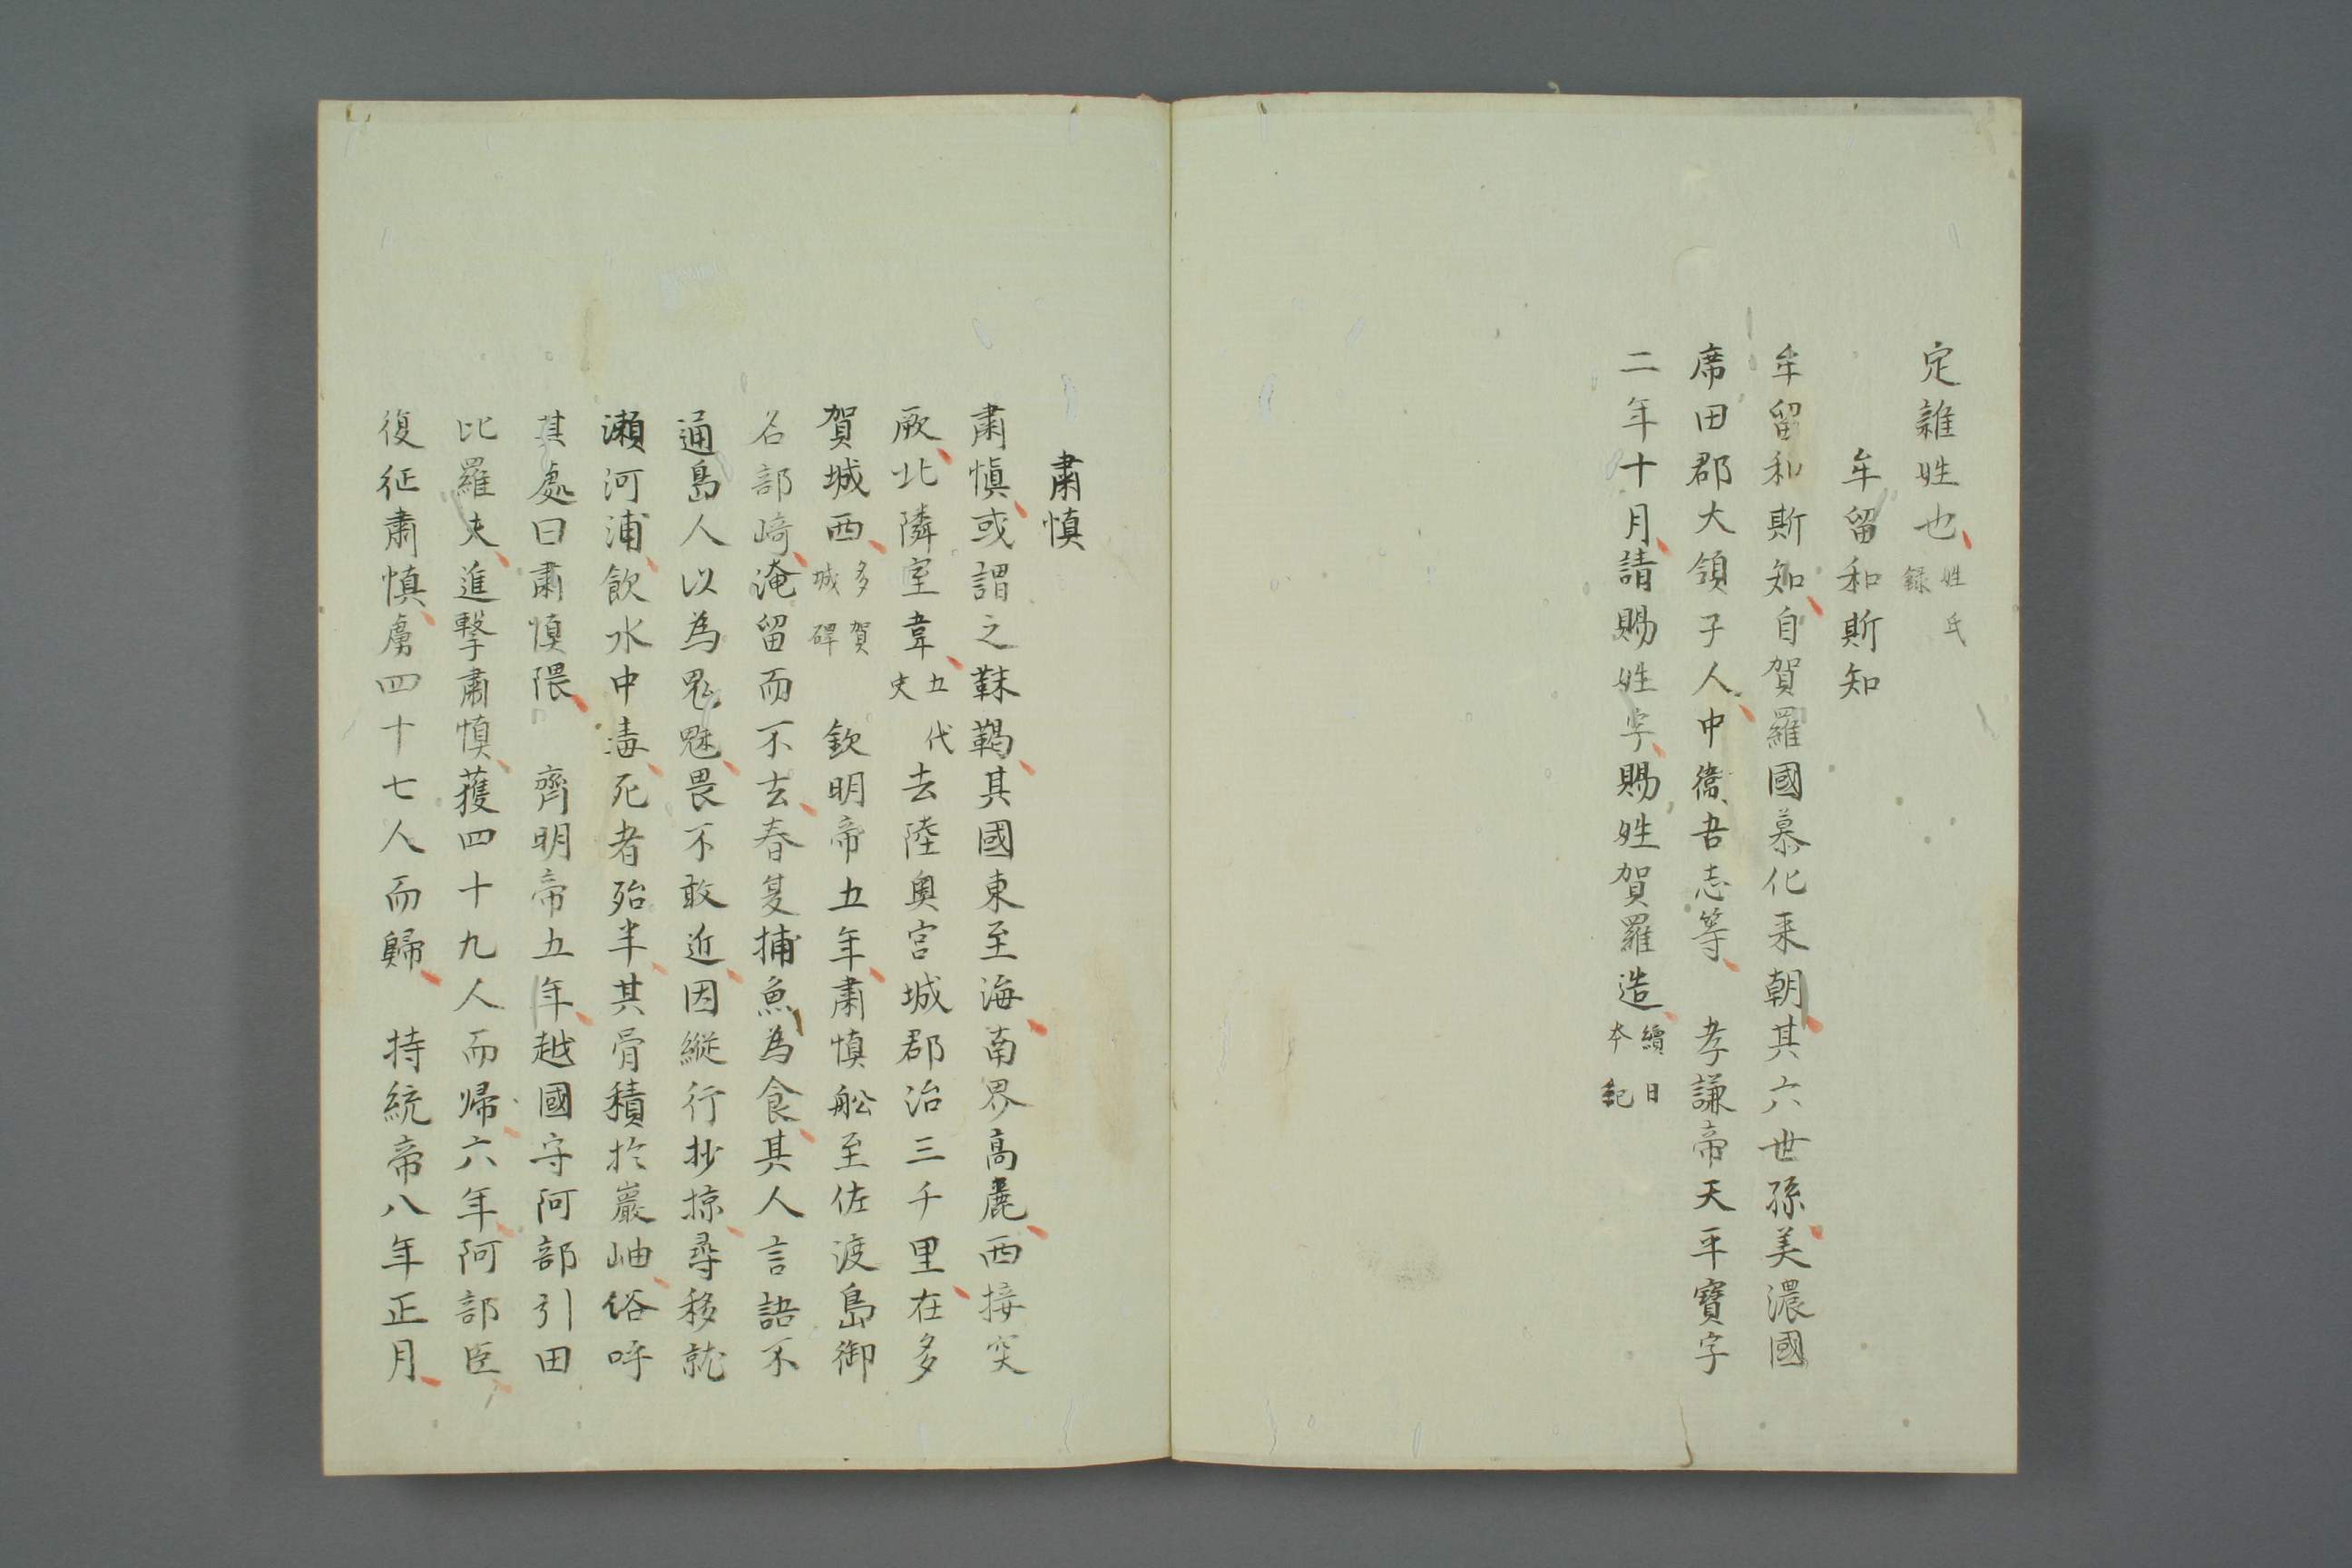 定雜姓也姓氏錄
牟留和斯知
牟留和斯知自賀羅國慕化来朝其六世孫美濃國
席田郡大領子人中衞吾志等　孝謙帝天平寶字
二年十月請賜姓字賜姓賀羅造續日本紀
肅慎
肅慎或謂之靺鞨其國東至海南界高麗西接突
厥北隣室韋五代史去陸奥宮城郡治三千里在多
賀城西多賀城碑　欽明帝五年肅慎舩至佐渡島御
名部﨑淹留而不去春夏捕魚為食其人言語不
通島人以為鬼魅畏不敢近因縱行抄掠尋移就
瀬河浦飲水中毒死者殆半其骨積於巖岫俗呼
其處曰肅慎隈　齊明帝五年越國守阿部引田
比羅夫進擊肅慎獲四十九人而帰六年阿部臣
復征肅慎虜四十七人而歸　持統帝八年正月